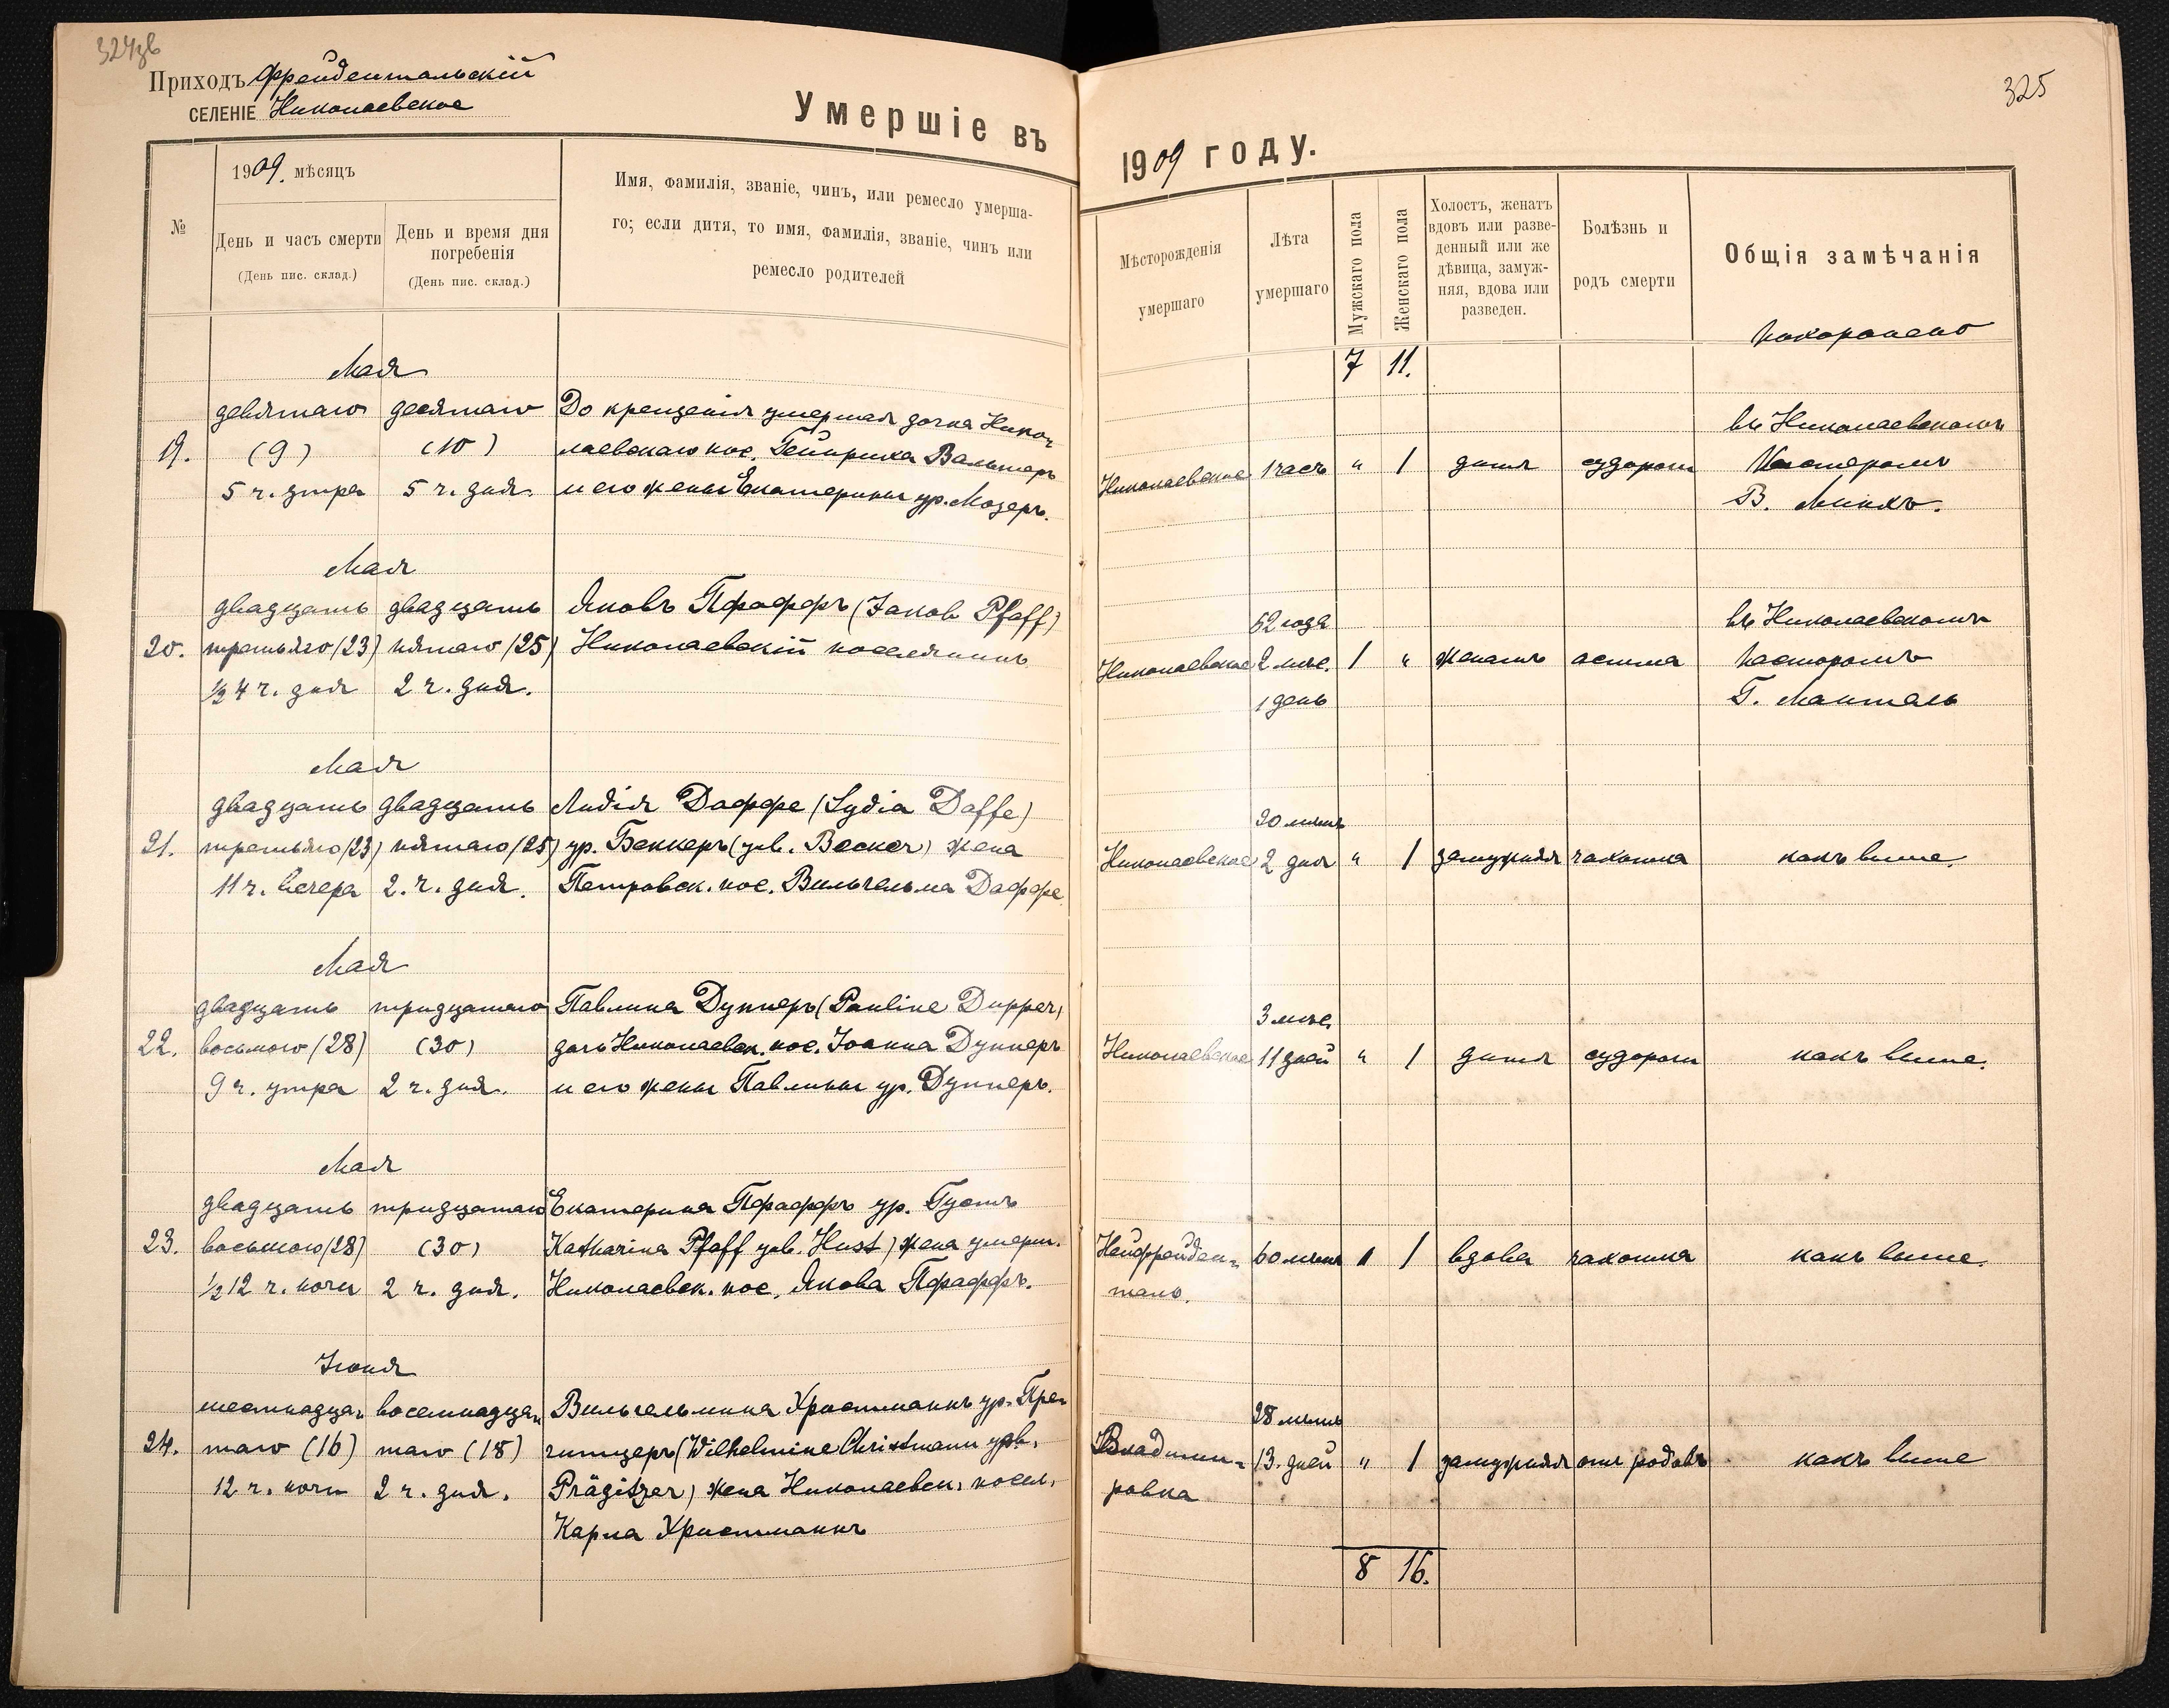 324зв
Приходъ Фрейдентальскій
СЕЛЕНІЕ Николаевское
Умершіе въ
1909 году.
325
№
1909. мѣсяцъ
День и часъ смерти
(День пис. склад.)
День и время дня
погребенія
(День пис. склад.)
Имя, фамилія, званіе, чинъ, или ремесло умерша-
го; если дитя, то имя, фамилія, званіе, чинъ или
ремесло родителей
Мѣсторожденія
умершаго
Лѣта
умершаго
Мужскаго пола
Женскаго пола
Холостъ, женатъ
вдовъ или разве-
денный или же
дѣвица, замуж-
няя, вдова или
разведен.
Болѣзнь и
родъ смерти
Общія замѣчанія
похоронено
7 11.
Мая
19.
девятаго
(9)
5 ч. утра
десятаго
(10)
5 ч. дня.
До крещенія умершая дочка Нико=
лаевскаго пос. Гейнриха Вальтеръ
и его жены Екатерины ур. Мозеръ.
Николаевское
1 часъ
" 1
дитя
судороги
въ Николаевскомъ
Пасторомъ
В. Минхъ.
Мая
20.
двадцать
третьяго (23)
½ 4 ч. дня
двадцать
пятаго (25)
2 ч. дня.
Яковъ Пфаффъ (Jakob Pfaff)
Николаевскій поселянинъ
Николаевское
52 года
2 мѣс.
1 день
1 "
женатъ
астма
въ Николаевскомъ
пасторомъ
Г. Манталь
Мая
21.
двадцать
третьяго (23)
11 ч. вечера
двадцать
пятаго (25)
2. ч. дня.
Лидія Даффе (Lydia Daffe)
ур. Беккеръ (geb. Becker) жена
Петровск. пос. Вильгельма Даффе
Николаевское
20 лѣтъ
2 дня
" 1
замужняя
чахотка
какъ выше.
Мая
22.
двадцать
восьмого (28)
9 ч. утра
тридцатаго
(30)
2 ч. дня.
Павлина Дупперъ (Pauline Dupper)
дочь Николаевск. пос. Іоанна Дупперъ
и его жены Павлины ур. Дупперъ.
Николаевское
3 мѣс.
11 дней
" 1
дитя
судороги
какъ выше.
Мая
23.
двадцать
восьмого (28)
½ 12 ч. ночи
тридцатаго
(30)
2 ч. дня.
Екатерина Пфаффъ ур. Густъ
Katharina Pfaff geb. Hust) жена умерш.
Николаевск. пос. Якова Пфаффъ.
Нейфрейден=
таль.
60 лѣтъ
" 1
вдова
чахотка
какъ выше.
Іюня
24.
шестнадца=
таго (16)
12 ч. ночи
восемнадца=
таго (18)
2 ч. дня.
Вильгельмина Христманнъ ур. Пре=
гитцеръ (Wilhelmine Christmann geb.
Prägitzer) жена Николаевск. посел.
Карла Христманнъ
Владими=
ровка
28 лѣтъ
13. дней
" 1
замужняя
отъ родовъ
какъ выше
8 16.